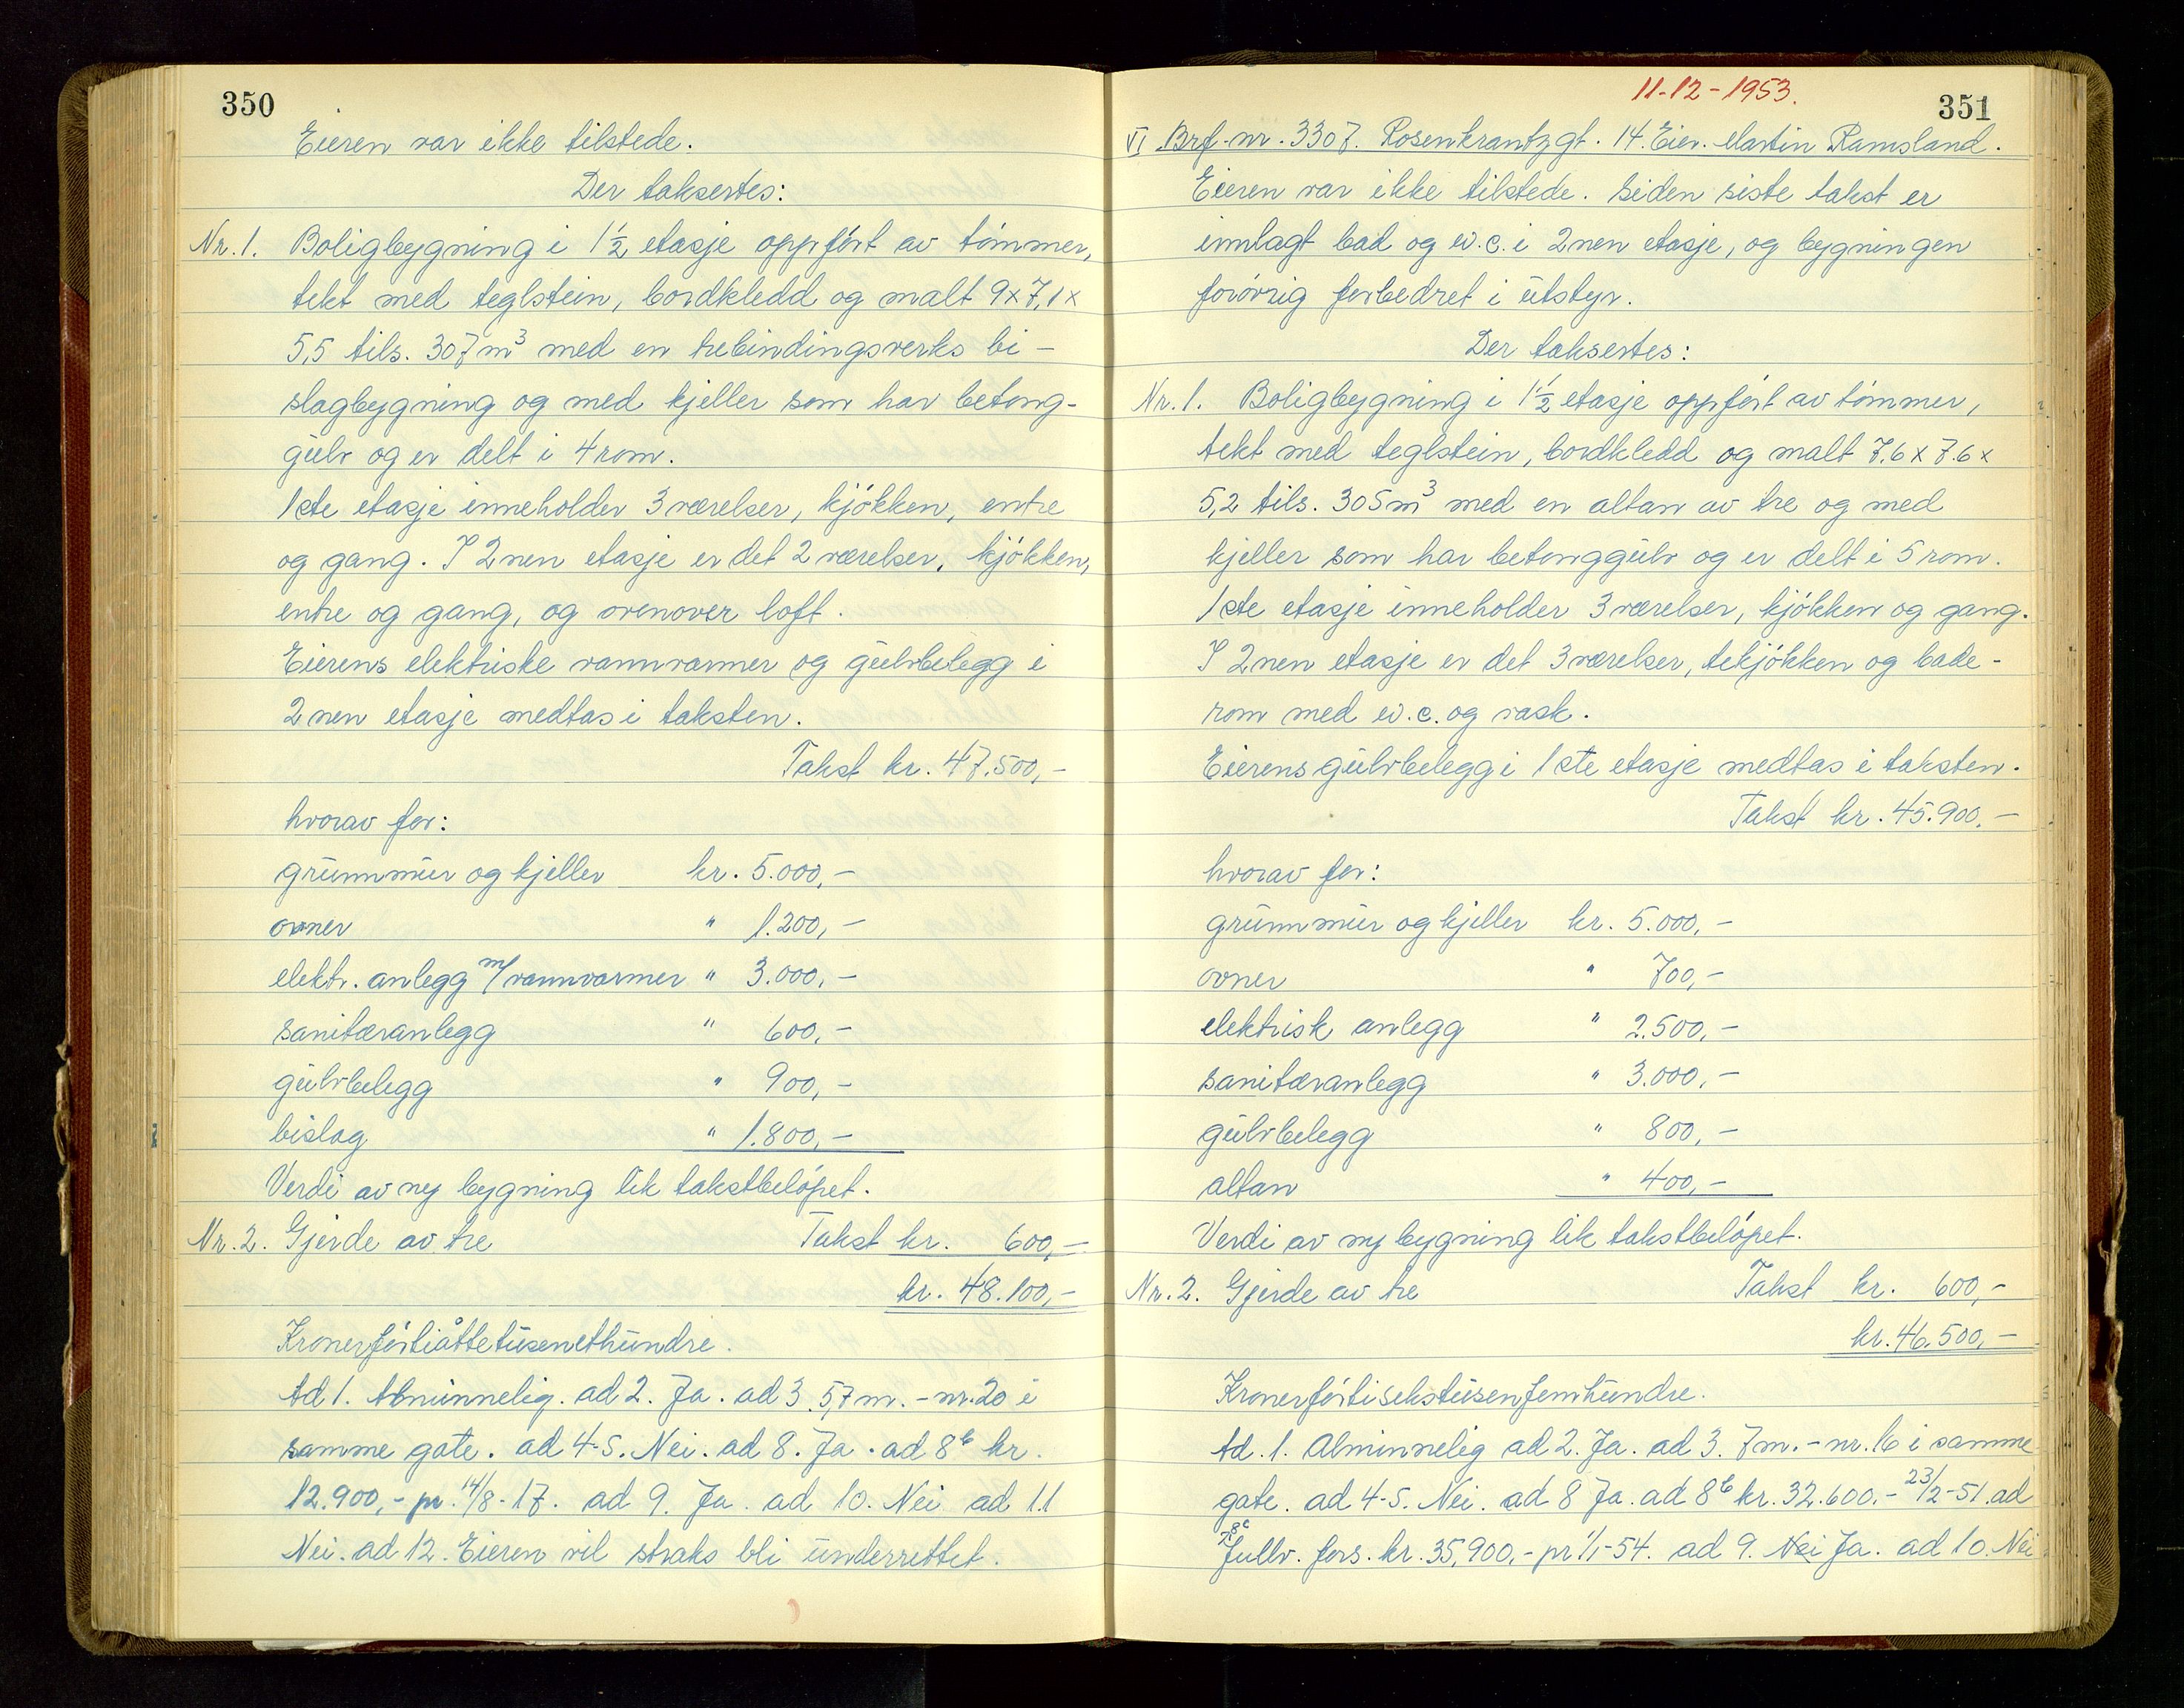 350
Eieren var ikke tilstede.
Der taksertes:
Nr. 1. Boligbygning i 1½ etasje oppført av tømmer,
tekt med teglstein, bordkledd og malt 9 x 7,1 x
5,5 tils. 307 m³ med en trebindingsverks bi-
slagbygning og med kjeller som har betong-
gulv og er delt i 4 rom.
1ste etasje inneholder 3 værelser, kjøkken, entre
og gang. I 2nen etasje er det 2 værelser, kjøkken,
entre og gang, og ovenover loft.
Eierens elektriske vannvarmer og gulvbelegg i
2nen etasje medtas i taksten.
Takst kr. 47.500,-
hvorav for:
grunnmur og kjeller kr. 5.000,-
ovner " 1.200,-
elektr. anlegg m/vannvarmer " 3.000,-
sanitæranlegg " 600,-
gulvbelegg " 900,-
bislag " 1.800,-
Verdi av ny bygning lik takstbeløpet.
Nr. 2. Gjerde av tre Takst kr. 600,-
kr. 48.100,-
Kronerførtiåttetusenethundre.
Ad 1. Alminnelig. ad 2. Ja. ad 3. 5,7 m. - nr. 20 i
samme gate. ad 4-5. Nei. ad 8. Ja. ad 8b kr.
12.900,- pr. 14/8-17. ad 9. Ja. ad 10. Nei ad 11
Nei. ad 12. Eieren vil straks bli underrettet.
11-12-1953.
351
VI Brf. nr. 3307. Rosenkrantzgt. 14. Eier. Martin Ramsland.
Eieren var ikke tilstede. Siden siste takst er
innlagt bad og w.c. i 2nen etasje, og bygningen
forøvrig forbedret i utstyr.
Der taksertes:
Nr. 1. Boligbygning i 1½ etasje oppført av tømmer,
tekt med teglstein, bordkledd og malt 7.6 x 7.6 x
5,2 tils. 305 m³ med en altan av tre og med
kjeller som har betonggulv og er delt i 5 rom.
1ste etasje inneholder 3 værelser, kjøkken og gang.
I 2nen etasje er det 3 værelser, tekjøkken og bade-
rom med w.c. og vask.
Eierens gulvbelegg i 1ste etasje medtas i taksten.
Takst kr. 45.900,-
hvorav for:
grunnmur og kjeller kr. 5.000,-
ovner " 700,-
elektrisk anlegg " 2.500,-
sanitæranlegg " 3.000,-
gulvbelegg " 800,-
altan " 400,-
Verdi av ny bygning lik takstbeløpet.
Nr. 2. Gjerde av tre Takst kr. 600,-
kr. 46.500,-
Kronerførtisekstusenfemhundre.
Ad. 1. Alminnelig ad 2. Ja. ad 3. 7 m. - nr. 16 i samme
gate. ad 4-5. Nei. ad 8 Ja. ad 8b kr. 32.600.- 23/2-51. ad
8c Fullv. fors. kr. 35,900,- pr 1/1-54. ad 9. Nei Ja. ad 10. Nei